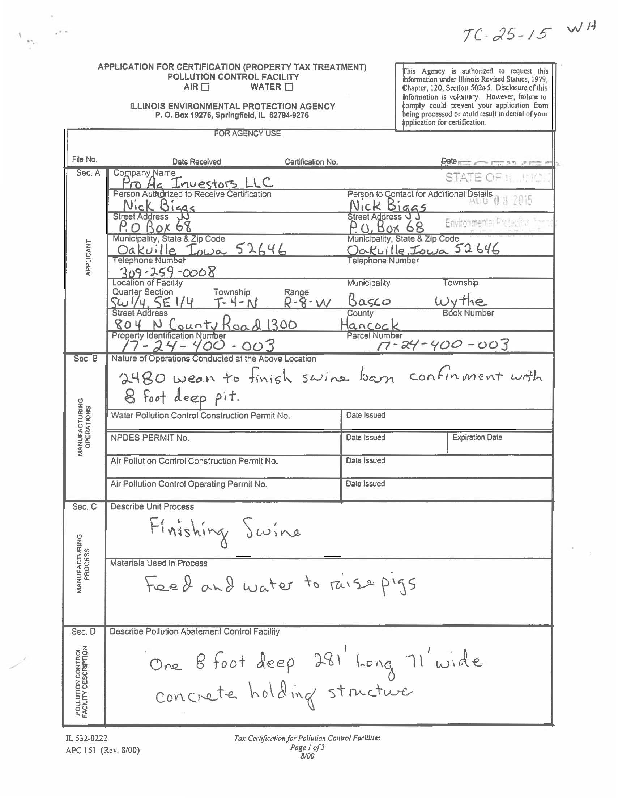 TC-25-15 WH
APPLICATION FOR CERTIFICATION (PROPERTY TAX TREATMENT)
POLLUTION CONTROL FACILITY
AIR ☐ WATER ☐
ILLINOIS ENVIRONMENTAL PROTECTION AGENCY
P. O. Box 19276, Springfield, IL 62794-9276
This Agency is authorized to request this
information under Illinois Revised Statues, 1979,
Chapter, 120, Section 502a-5. Disclosure of this
information is voluntary. However, failure to
comply could prevent your application from
being processed or could result in denial of your
application for certification.
FOR AGENCY USE
File No. Date Received Certification No. Date
Sec. A Company Name
Pro Ag Investors LLC
STATE OF
Person Authorized to Receive Certification Person to Contact for Additional Details
AUG 08 2015
Nick Biggs Nick Biggs
Street Address Street Address
P.O Box 68 P.O. Box 68
Environmental
Municipality, State & Zip Code Municipality, State & Zip Code
Oakville Iowa 52646 Oakville, Iowa 52646
Telephone Number Telephone Number
309-259-0008
APPLICANT
Location of Facility Municipality Township
Quarter Section Township Range
SW 1/4, SE 1/4 T-4-N R-8-W Basco Wythe
Street Address County Book Number
804 N County Road 1300 Hancock
Property Identification Number Parcel Number
17-24-400-003 17-24-400-003
Sec. B Nature of Operations Conducted at the Above Location
2480 wean to finish swine barn confinment with
8 foot deep pit.
MANUFACTURING
OPERATIONS
Water Pollution Control Construction Permit No. Date Issued
NPDES PERMIT No. Date Issued Expiration Date
Air Pollution Control Construction Permit No. Date Issued
Air Pollution Control Operating Permit No. Date Issued
Sec. C Describe Unit Process
Finishing Swine
MANUFACTURING
PROCESS
Materials Used in Process
Feed and water to raise pigs
Sec. D Describe Pollution Abatement Control Facility
One 8 foot deep 281' Long 71' wide
concrete holding structure
POLLUTION CONTROL
FACILITY DESCRIPTION
IL 532-0222 Tax Certification for Pollution Control Facilities
APC 151 (Rev. 8/00) Page 1 of 3
8/00